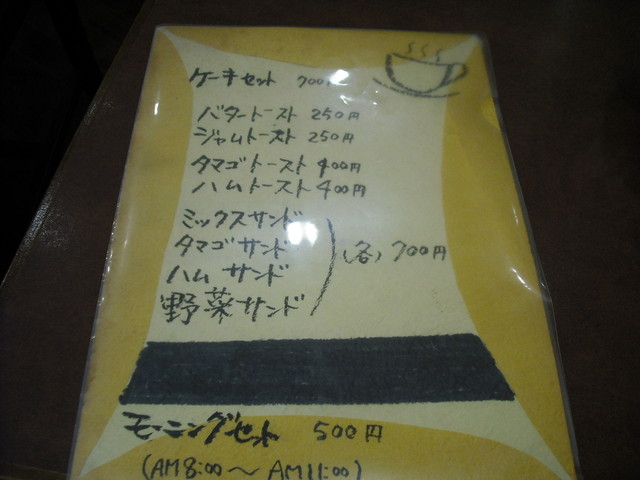 ケーキセット 700円
バタートースト 250円
ジャムトースト 250円
タマゴトースト 400円
ハムトースト 400円
ミックスサンド
タマゴサンド
ハムサンド
野菜サンド
(各) 700円
モーニングセット 500円
(AM8:00～AM11:00)